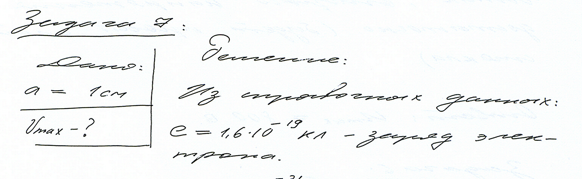 Задача 7:
Дано:
a = 1 см
Vmax - ?
Решение:
Из справочных данных:
e = 1,6·10⁻¹⁹ кл - заряд элек-
трона.